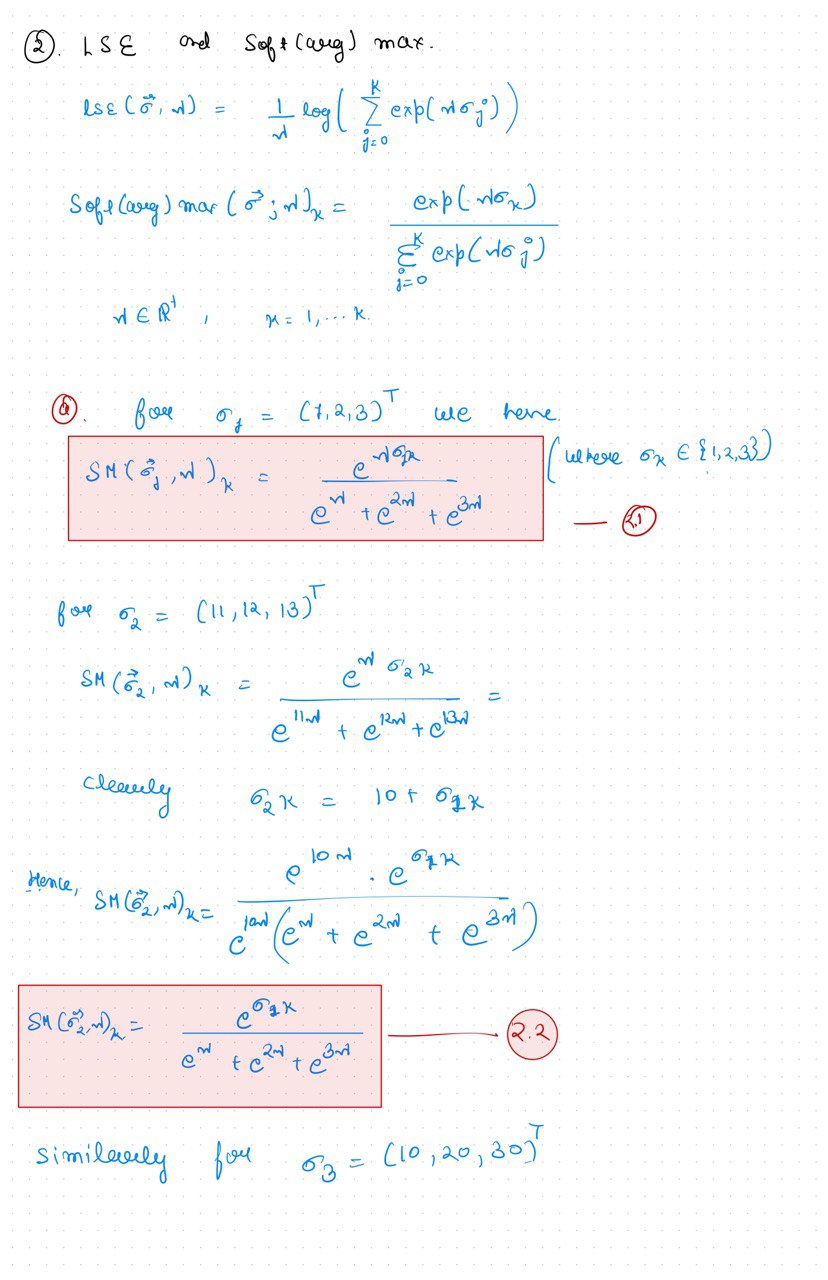 ②. LSE and Soft(arg) max.
lse(σ⃗, λ) = 1/λ log( Σ_{j=0}^{K} exp(λσ_j) )
Soft(arg) max(σ⃗; λ)_k = exp(λσ_k) / Σ_{j=0}^{K} exp(λσ_j)
λ ∈ ℝ⁺, k = 1, ... K.
ⓐ. for σ_1 = (1,2,3)^T we have.
SM(σ⃗_1, λ)_k = e^{λσ_1k} / e^{λ} + e^{2λ} + e^{3λ} (where σ_k ∈ {1,2,3})
— 2.1
for σ_2 = (11, 12, 13)^T
SM(σ⃗_2, λ)_k = e^{λ σ_2k} / e^{11λ} + e^{12λ} + e^{13λ} =
Clearly σ_2k = 10 + σ_1k
Hence, SM(σ⃗_2, λ)_k = e^{10λ} . e^{σ_1k} / e^{10λ}(e^{λ} + e^{2λ} + e^{3λ})
SM(σ⃗_2, λ)_k = e^{σ_1k} / e^{λ} + e^{2λ} + e^{3λ} → 2.2
Similarly for σ_3 = (10, 20, 30)^T